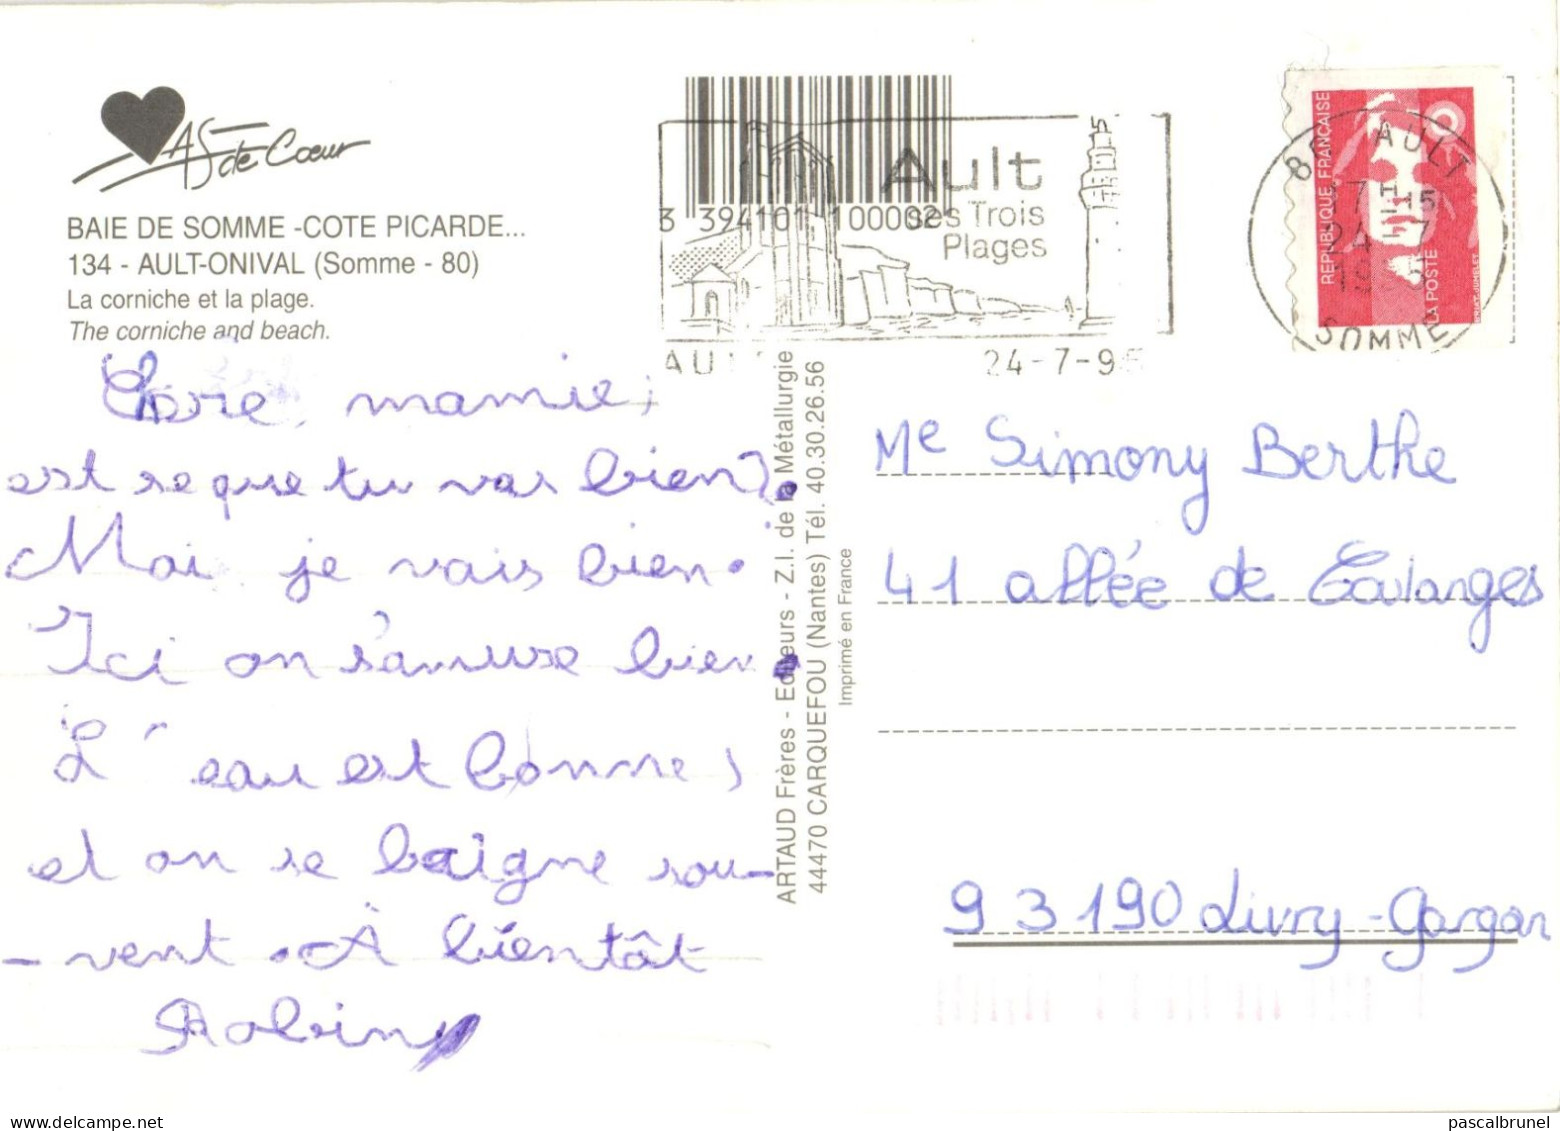 AS de Cœur
BAIE DE SOMME -COTE PICARDE...
134 - AULT-ONIVAL (Somme - 80)
La corniche et la plage.
The corniche and beach.
3 394101 100002
Ault
ses Trois
Plages
24-7-95
80 AULT
17 H 15
24-7
SOMME
REPUBLIQUE FRANÇAISE
LA POSTE
BRIAT. JUMELET
mamie,
est se que tu vas bien?
Moi je vais bien.
Ici on s'amuse bien.
L' eau est bonne,
et on se baigne sou-
-vent. À bientôt
Robin
ARTAUD Frères - Editeurs - Z.I. de la Métallurgie
44470 CARQUEFOU (Nantes) Tél. 40.30.26.56
Imprimé en France
Me Simony Berthe
41 allée de Coulanges
93190 Livry-Gargan
pascalbrunel